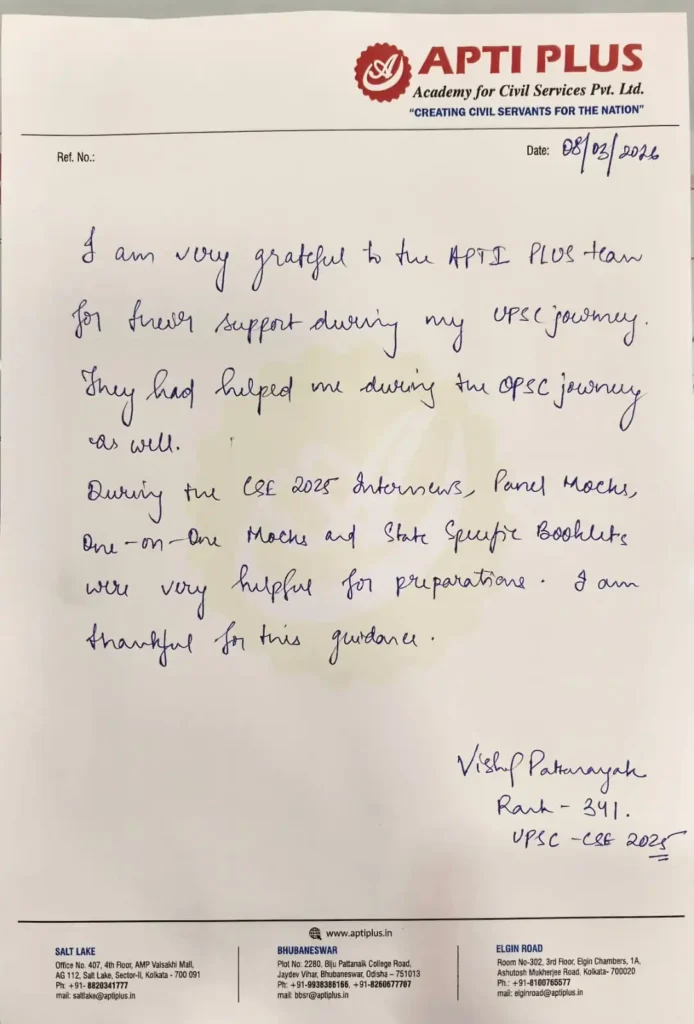 APTI PLUS
Academy for Civil Services Pvt. Ltd.
"CREATING CIVIL SERVANTS FOR THE NATION"
Ref. No.:
Date: 08/03/2026
I am very grateful to the APTI PLUS team
for their support during my UPSC journey.
They had helped me during the OPSC journey
as well.
During the CSE 2025 Interviews, Panel Mocks,
One-on-One Mocks and State Specific Booklets
were very helpful for preparations. I am
thankful for this guidance.
Pattanayak
Rank - 391.
UPSC - CSE 2025
www.aptiplus.in
SALT LAKE
Office No. 407, 4th Floor, AMP Vaisakhi Mall,
AG 112, Salt Lake, Sector-II, Kolkata - 700 091
Ph: +91- 8820341777
mail: saltlake@aptiplus.in
BHUBANESWAR
Plot No: 2280, Biju Pattanaik College Road,
Jaydev Vihar, Bhubaneswar, Odisha – 751013
Ph: +91-9938386166, +91-8260677707
mail: bbsr@aptiplus.in
ELGIN ROAD
Room No-302, 3rd Floor, Elgin Chambers, 1A,
Ashutosh Mukherjee Road, Kolkata- 700020
Ph.: +91-8100765577
mail: elginroad@aptiplus.in